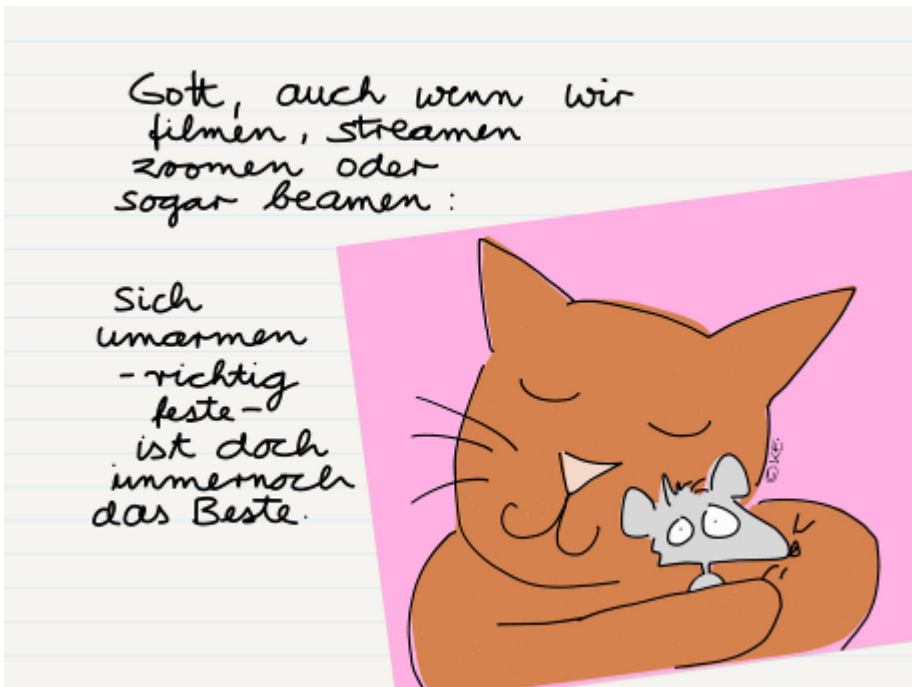 Gott, auch wenn wir
filmen, streamen
zoomen oder
sogar beamen:
Sich
umarmen
-richtig
feste-
ist doch
immernoch
das Beste.
©KE.